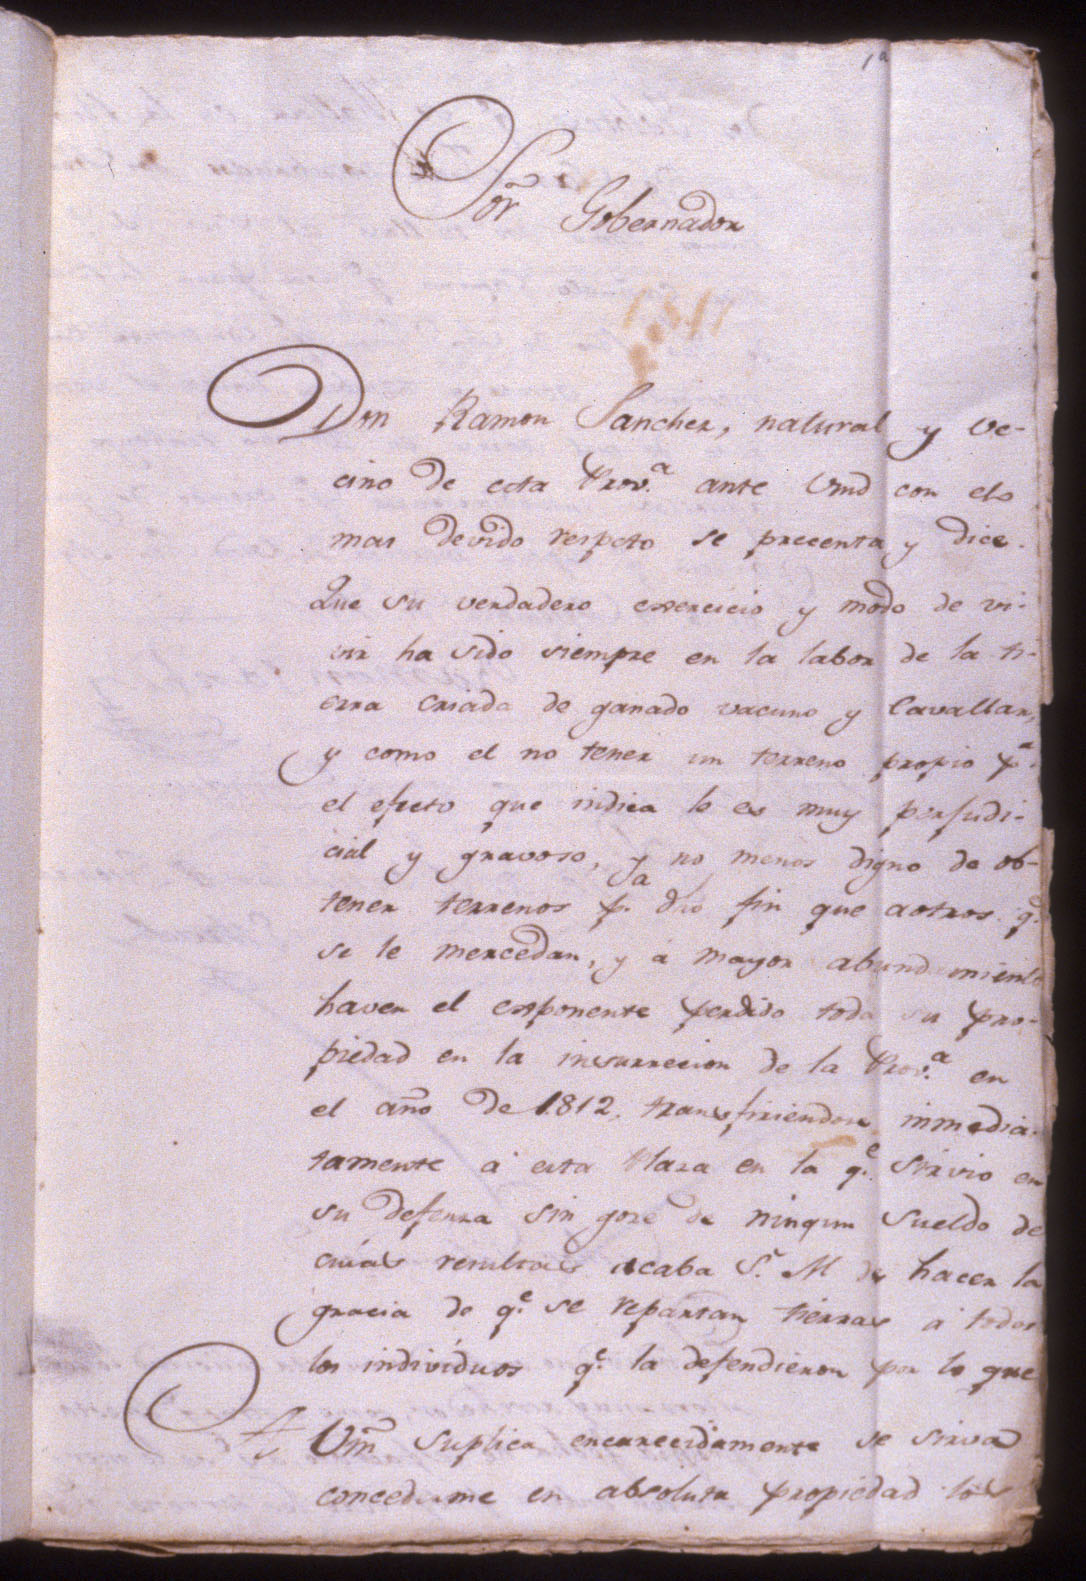 1ª
Sor̃ Gobernador
Don Ramon Sanchez, natural y ve-
cino de esta Prov.ª ante Vmd con el
mas devido respeto se precenta y dice.
Que su verdadero exercicio y modo de vi-
vir ha sido siempre en la labor de la ti-
erra criada de ganado vacuno y Cavallar,
y como el no tener un terreno propio p.ª
el efecto que indica le es muy perjudi-
cial y gravoso, y no menos digno de ob-
tener terrenos p.ª dho fin que aotros q.e
se le mercedan, y á mayor abundamiento
haver el exponente perdido toda su pro-
piedad en la insurrecion de la Prov.ª en
el año de 1812, transfiriendose inmedia-
tamente á esta Plaza en la q.e sirvio en
su defensa sin goze de ningun sueldo de
cuias resultas acaba S. M de hacer la
gracia de q.e se repartan tierras á todos
los individuos q.e la defendieron por lo que
A Vm̃ suplica encarecidamente se sirva
concederme en absoluta propiedad los